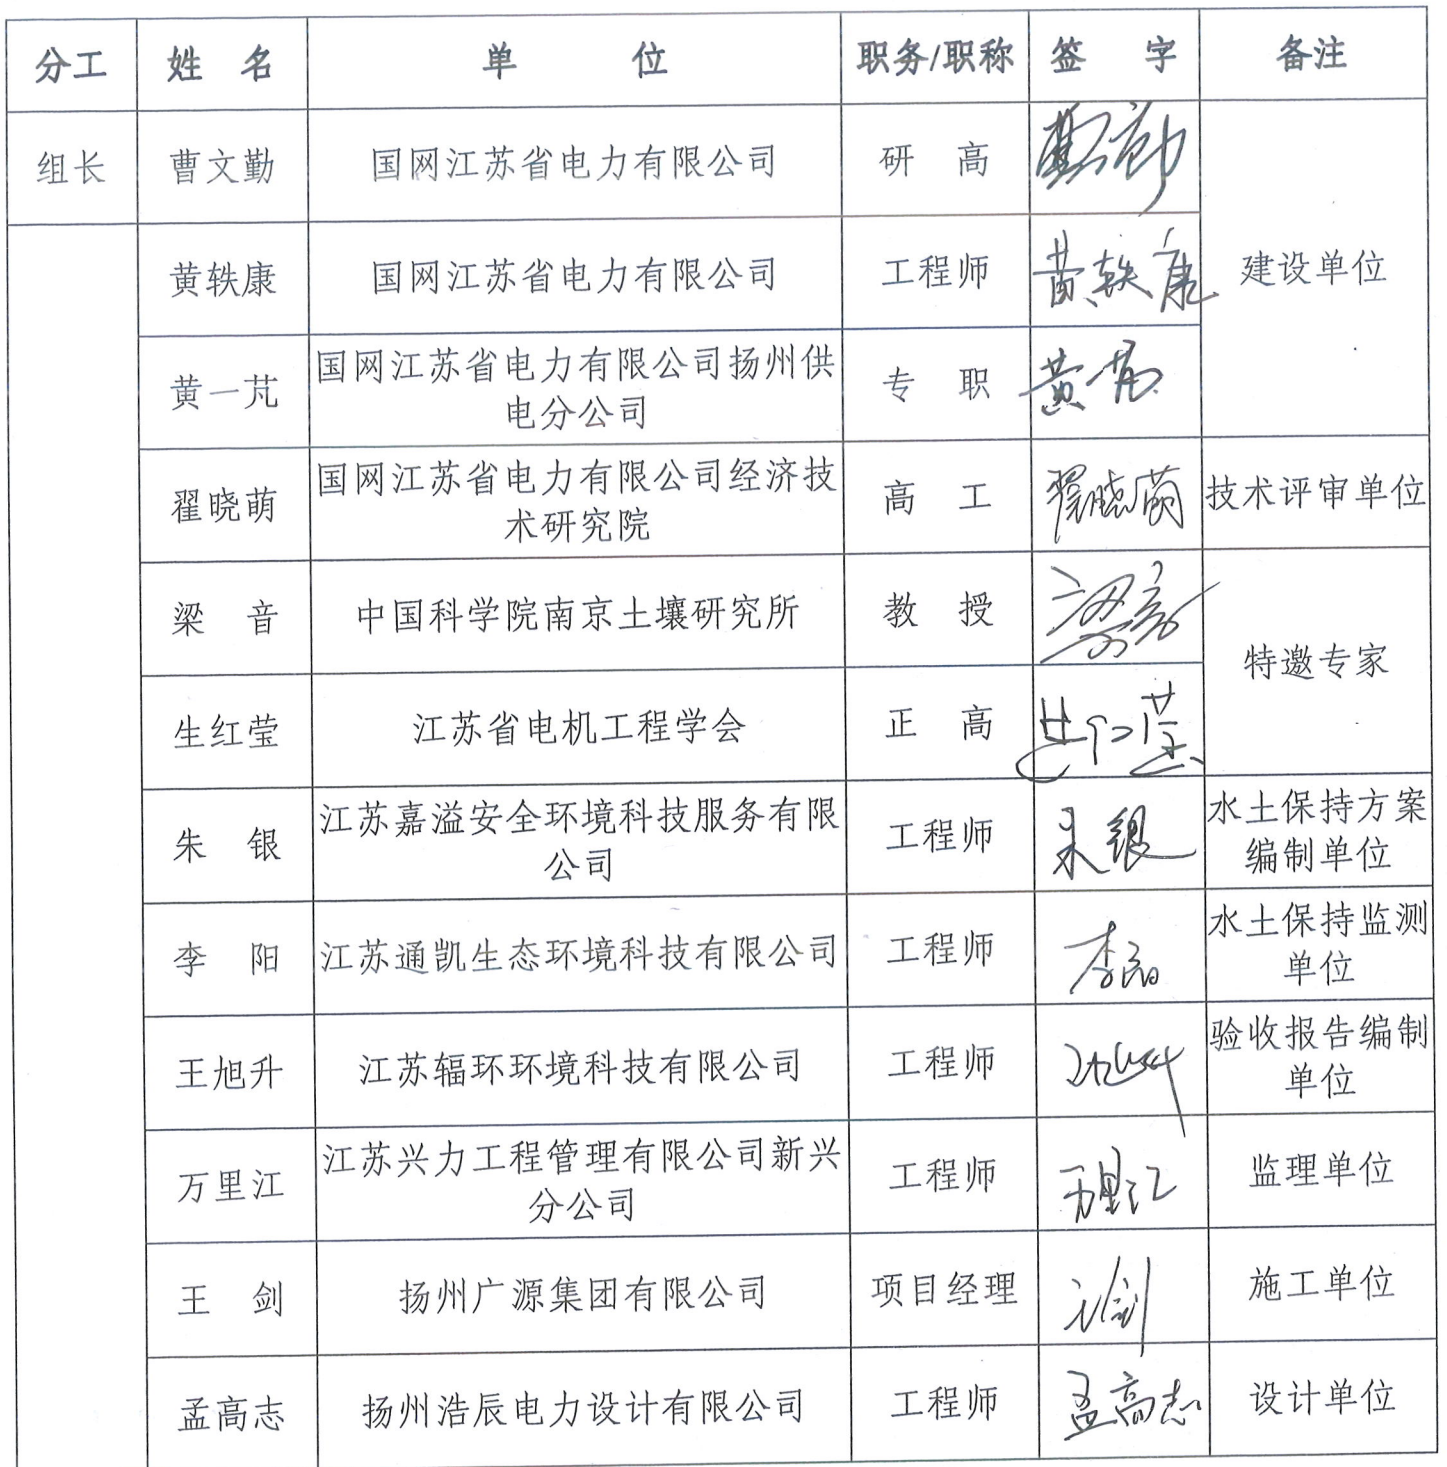 分工 姓 名 单 位 职务/职称 签 字 备注
组长 曹文勤 国网江苏省电力有限公司 研 高 曹文勤
黄轶康 国网江苏省电力有限公司 工程师 黄轶康 建设单位
黄一芃 国网江苏省电力有限公司扬州供
电分公司 专 职 黄一芃
翟晓萌 国网江苏省电力有限公司经济技
术研究院 高 工 翟晓萌 技术评审单位
梁 音 中国科学院南京土壤研究所 教 授 梁音
特邀专家
生红莹 江苏省电机工程学会 正 高 生红莹
朱 银 江苏嘉溢安全环境科技服务有限
公司 工程师 朱银 水土保持方案
编制单位
李 阳 江苏通凯生态环境科技有限公司 工程师 李阳 水土保持监测
单位
王旭升 江苏辐环环境科技有限公司 工程师 王旭升 验收报告编制
单位
万里江 江苏兴力工程管理有限公司新兴
分公司 工程师 万里江 监理单位
王 剑 扬州广源集团有限公司 项目经理 王剑 施工单位
孟高志 扬州浩辰电力设计有限公司 工程师 孟高志 设计单位